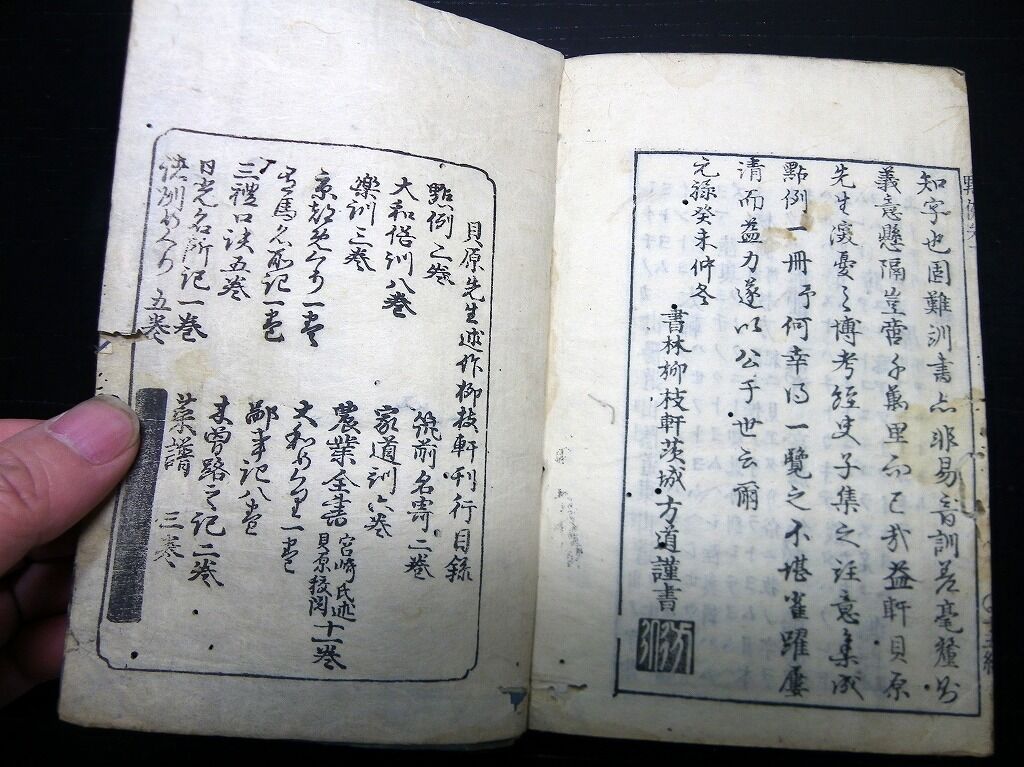 知字也固難訓書亦非易音訓差毫釐則
義意懸隔豈啻千萬里而已哉益軒貝原
先生深憂之博考經史子集之註意集成
點例一冊予何幸得一覽之不堪雀躍屢
請而益力遂以公于世云爾
元祿癸未仲冬
書林柳枝軒茨城方道謹書
貝原先生述作柳枝軒刊行目錄
點例二卷
筑前名寄二卷
大和俗訓八卷
家道訓六卷
樂訓三卷
農業全書 宮崎氏述 貝原校閱 十一卷
京都めくり一卷
大和めくり一卷
有馬名所記一卷
鄙事記八卷
三禮口訣五卷
木曾路之記二卷
日光名所記一卷
菜譜 三卷
諸州めくり 五卷